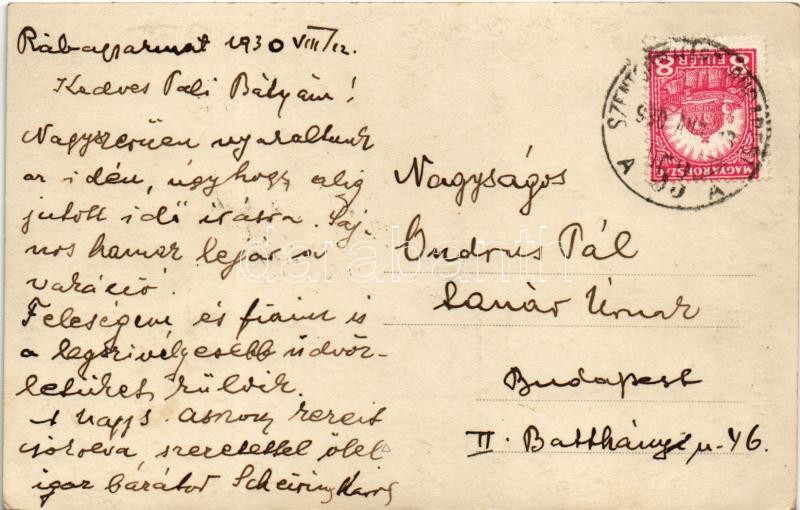 Rábagyarmat 1930 VIII/12.
Kedves Pali Bátyám!
Nagyszerűen nyaraltunk
az idén, úgyhogy alig
jutott idő írásra. Saj-
nos hamar lejár a
vakáció.
Feleségem és fiaim is
a legszivélyesebb üdvöz-
letüket küldik.
A nagys. asszony kezeit
csókolva szeretettel ölel
igaz barátod Scheiring Károly
Nagyságos
Gudrus Pál
tanár Úrnak
Budapest
II. Batthányi u. 46.
8 FILLÉR 8
MAGYARORSZÁG
A A
darabanth